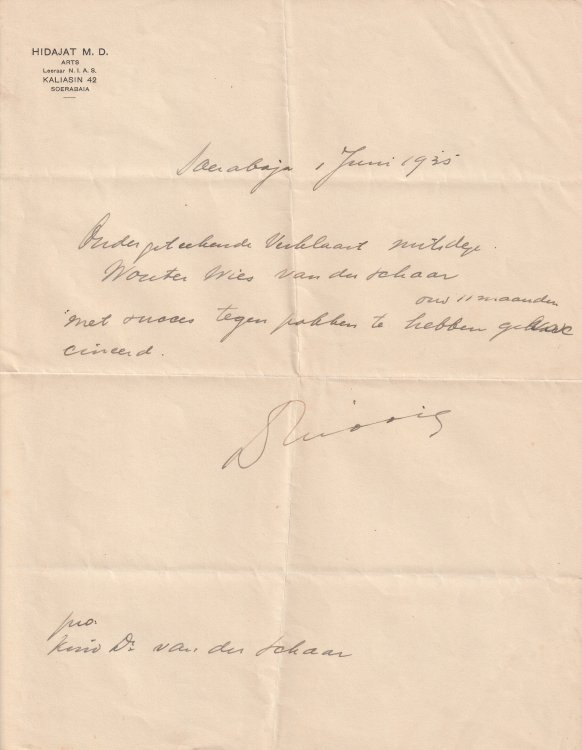 HIDAJAT M. D.
ARTS
Leeraar N. I. A. S.
KALIASIN 42
SOERABAIA
Soerabaja 1 Juni 1935
Ondergeteekende Verklaart mitsdezn.
Wouter Wies van der Schaar
oud 11 maanden
met succes tegen pokken te hebben gevac
cineerd.
pro.
Kind Dr van der Schaar